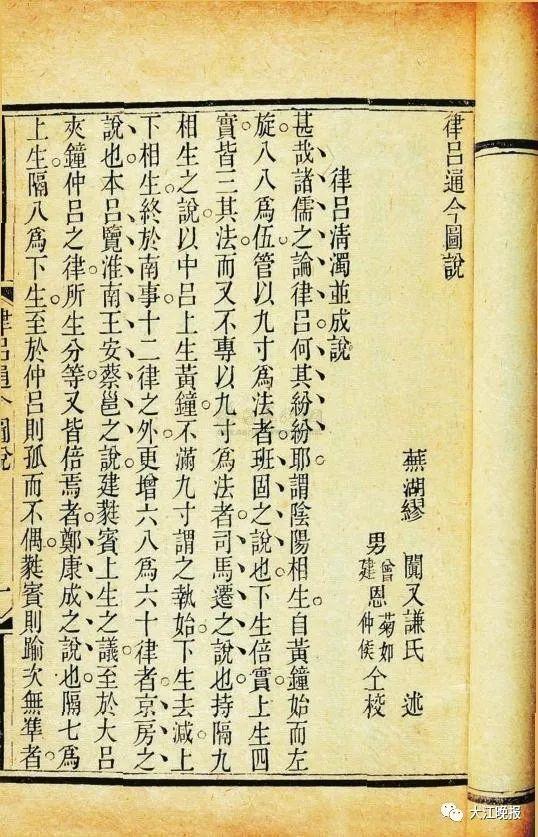 律呂通今圖說
蕪湖繆　闐又謙氏　述
男曾恩菊如仝校
建　仲侯
律呂清濁並成說
甚哉諸儒之論律呂何其紛紛耶謂陰陽相生自黃鐘始而左
旋八八爲伍管以九寸爲法者班固之說也下生倍實上生四
實皆三其法而又不專以九寸爲法者司馬遷之說也持隔九
相生之說以中呂上生黃鐘不滿九寸謂之執始下生去減上
下相生終於南事十二律之外更增六八爲六十律者京房之
說也本呂覽淮南王安蔡邕之說建蕤賓上生之議至於大呂
夾鐘仲呂之律所生分等又皆倍焉者鄭康成之說也隔七爲
上生隔八爲下生至於仲呂則孤而不偶蕤賓則踰次無準者
律呂通今圖說
大江晚报